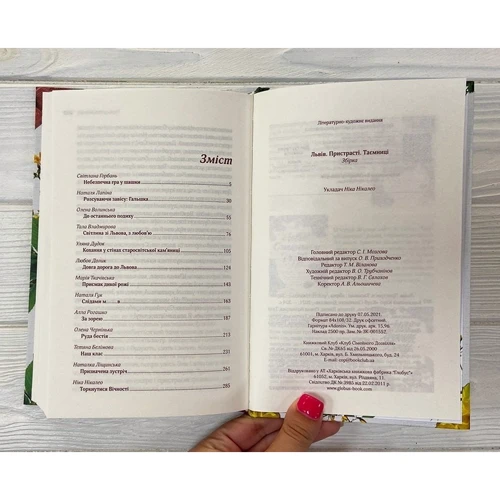 Зміст
Світлана Горбань
Небезпечна гра у шашки 5
Наталя Лапіна
Розсуваючи завісу: Гальшка 30
Олена Волинська
До останнього подиху 55
Тала Владмирова
Світлина зі Львова, з любов'ю 76
Уляна Дудок
Кохання у стінах старосвітської кам'яниці 105
Любов Долик
Довга дорога до Львова 124
Марія Ткачівська
Присмак дикої рожі 143
Наталя Гук
Слідами м......а 163
Алла Рогашко
За зорею 187
Олена Чернінька
Руда бестія 217
Тетяна Белімова
Наш клас 237
Наталка Ліщинська
Призначена зустріч 261
Ніка Нікалео
Торкнутися Вічності 285
Літературно-художнє видання
Львів. Пристрасті. Таємниці
Збірка
Укладач Ніка Нікалео
Головний редактор С. І. Мозгова
Відповідальний за випуск О. В. Приходченко
Редактор Т. М.
Художній редактор В. О. Трубчанінов
Технічний редактор В. Г. Євлахов
Коректор А. В.
Підписано до друку 07.05.2021.
Формат 84x108/32. Друк офсетний.
Гарнітура Ум. друк. арк. 15,96.
Наклад 2500 пр. Зам. №
Книжковий Клуб «Клуб Сімейного Дозвілля»
Св. № ДК65 від 26.05.2000
61001, м. Харків, вул. Б. Хмельницького, буд. 24
E-mail: cop@bookclub.ua
Віддруковано у АТ «Харківська книжкова фабрика "Глобус"»
61052, м. Харків, вул. Різдвяна, 11.
Свідоцтво ДК № 3985 від 22.02.2011 р.
www.globus-book.com